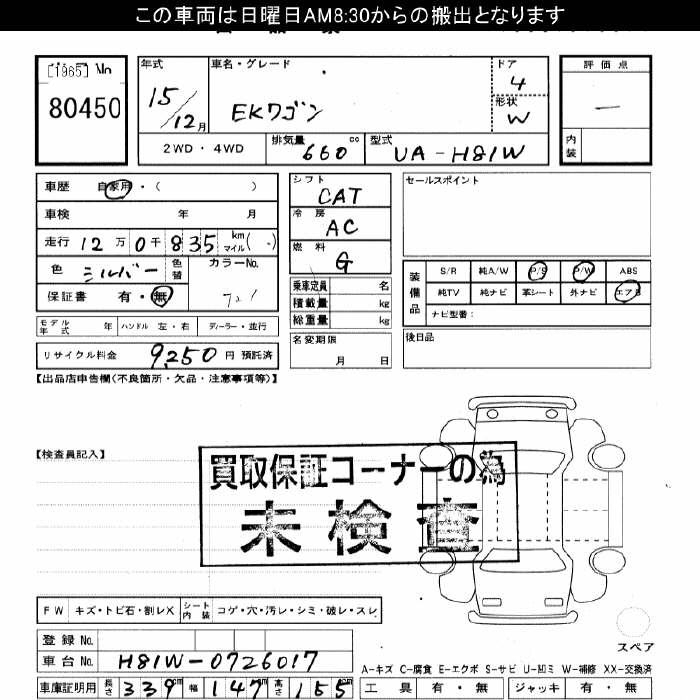 この車両は日曜日AM8:30からの搬出となります
[1965] No
80450
年式
15/12月
車名・グレード
EKワゴン
ドア
4
形状
W
評価点
—
内装
2WD・4WD
排気量
660 cc
型式
UA-H81W
車歴 自家用・( )
車検 年 月
走行 12万0千835 km マイル( )
色 シルバー 色替 カラーNo.
保証書 有・無
モデル年式 年 ハンドル 左・右 ディーラー・並行
リサイクル料金 9,250 円 預託済
シフト
CAT
冷房
AC
燃料
G
乗車定員 名
積載量 kg
総重量 kg
名変期限
月 日
セールスポイント
装備品
S/R 純A/W P/S P/W ABS
純TV 純ナビ 革シート 外ナビ エアB
ナビ型番:
後日品
【出品店申告欄(不良箇所・欠品・注意事項等)】
【検査員記入】
買取保証コーナーの為
未検査
FW キズ・トビ石・割レX シート内装 コゲ・穴・汚レ・シミ・破レ・スレ
登録No.
車台No. H81W-0726017
車庫証明用 長さ 339cm 幅 147cm 高さ 155cm
スペア
A-キズ C-腐食 E-エクボ S-サビ U-凹ミ W-補修 XX-交換済
工具 有・無 ジャッキ 有・無